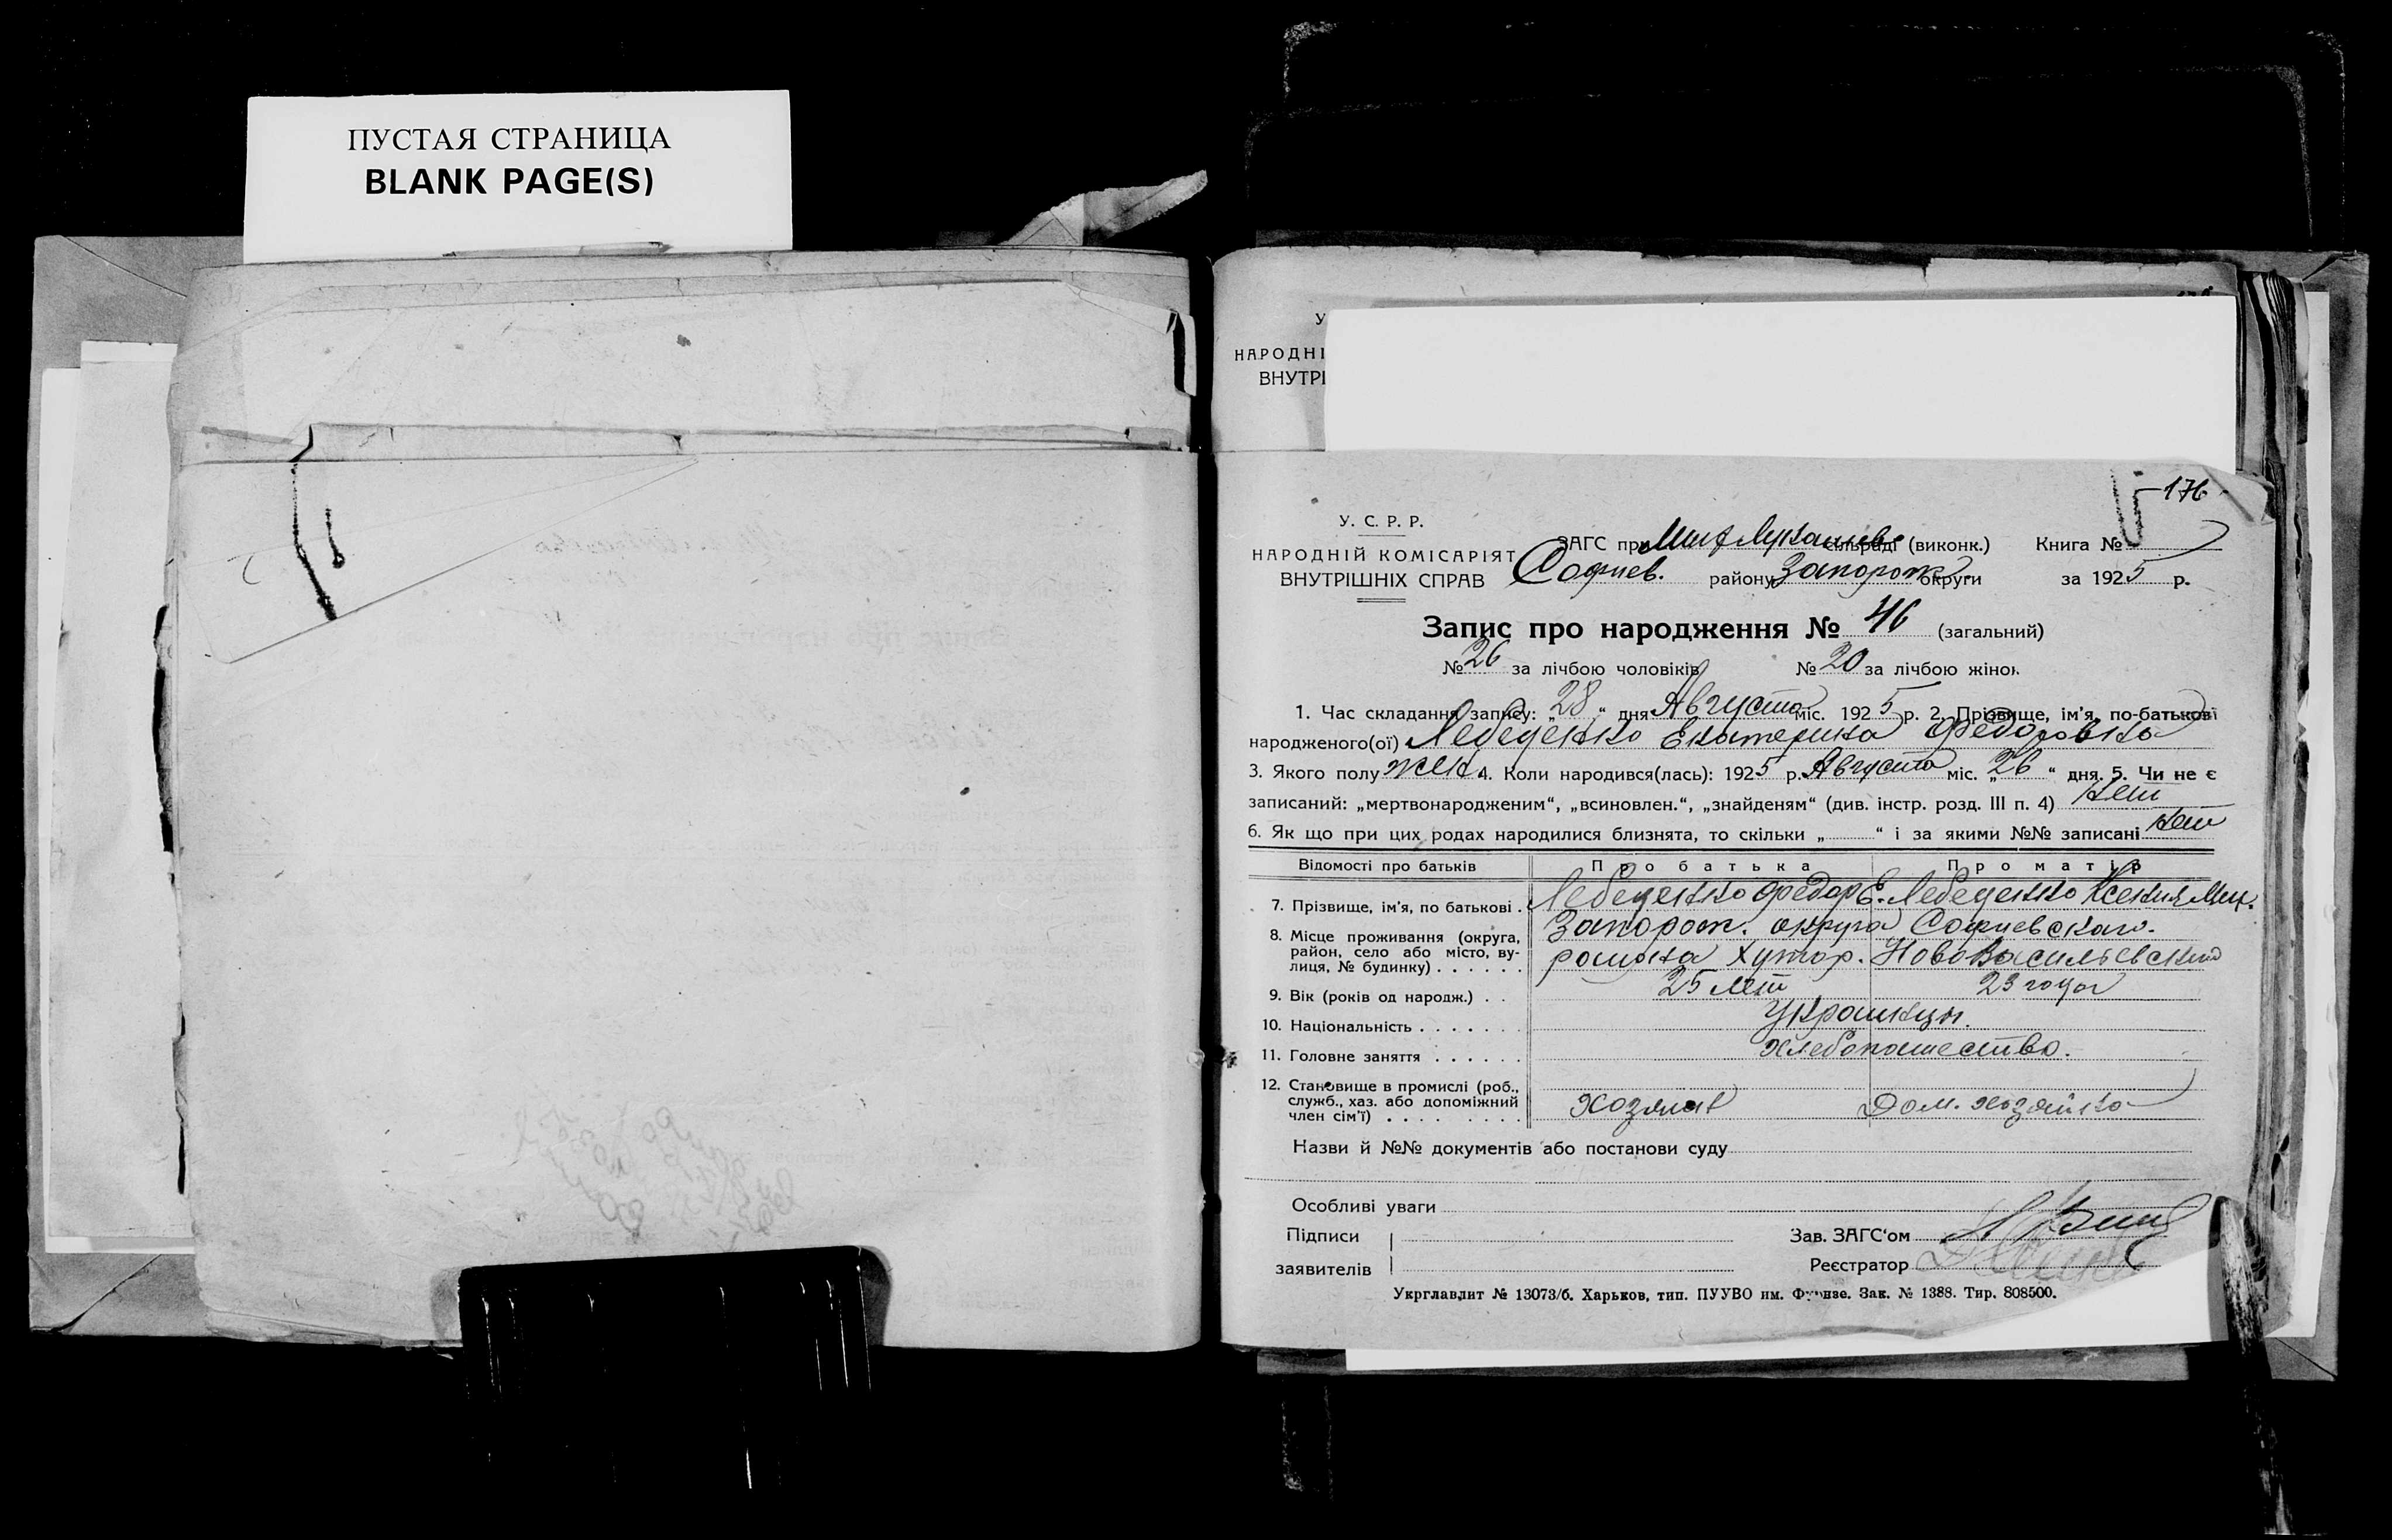 ПУСТАЯ СТРАНИЦА
BLANK PAGE(S)
У
НАРОДНІ
ВНУТРІ
176
У. С. Р. Р.
НАРОДНІЙ КОМІСАРІЯТ
ВНУТРІШНІХ СПРАВ
ЗАГС при сільраді (виконк.) Книга №
Софиев. району Запорож. округи за 1925 р.
Запис про народження № 46 (загальний)
№ 26 за лічбою чоловіків № 20 за лічбою жінок
1. Час складання запису: „28“ дня Августа міс. 1925 р. 2. Прізвище, ім'я, по-батькові
народженого(ої) Лебеденко Екатерина Федоровна
3. Якого полу жен. 4. Коли народився(лась): 1925 р. Августа міс. „26“ дня. 5. Чи не є
записаний: „мертвонародженим“, „всиновлен.“, „знайденям“ (див. інстр. розд. III п. 4) нет
6. Як що при цих родах народилися близнята, то скільки „ “ і за якими №№ записані нет
Відомості про батьків Про батька Про матір
7. Прізвище, ім'я, по батькові . Лебеденко Федор Е. Лебеденко Ксения
8. Місце проживання (округа, район, село або місто, вулиця, № будинку) . . . . . . Запорож. округа Софиевскаго
района Хутор. Нововасильевский
9. Вік (років од народж.) . . 25 лет 23 года
10. Національність . . . . . . . Украинцы.
11. Головне заняття . . . . . . Хлебопашество.
12. Становище в промислі (роб., служб., хаз. або допоміжний член сім'ї) . . . . . . . . Хозяин Дом. хозяйка
Назви й №№ документів або постанови суду
Особливі уваги
Підписи
заявителів
Зав. ЗАГС'ом
Реєстратор
Укрглавлит № 13073/б. Харьков, тип. ПУУВО им. Фрунзе. Зак. № 1388. Тир. 808500.